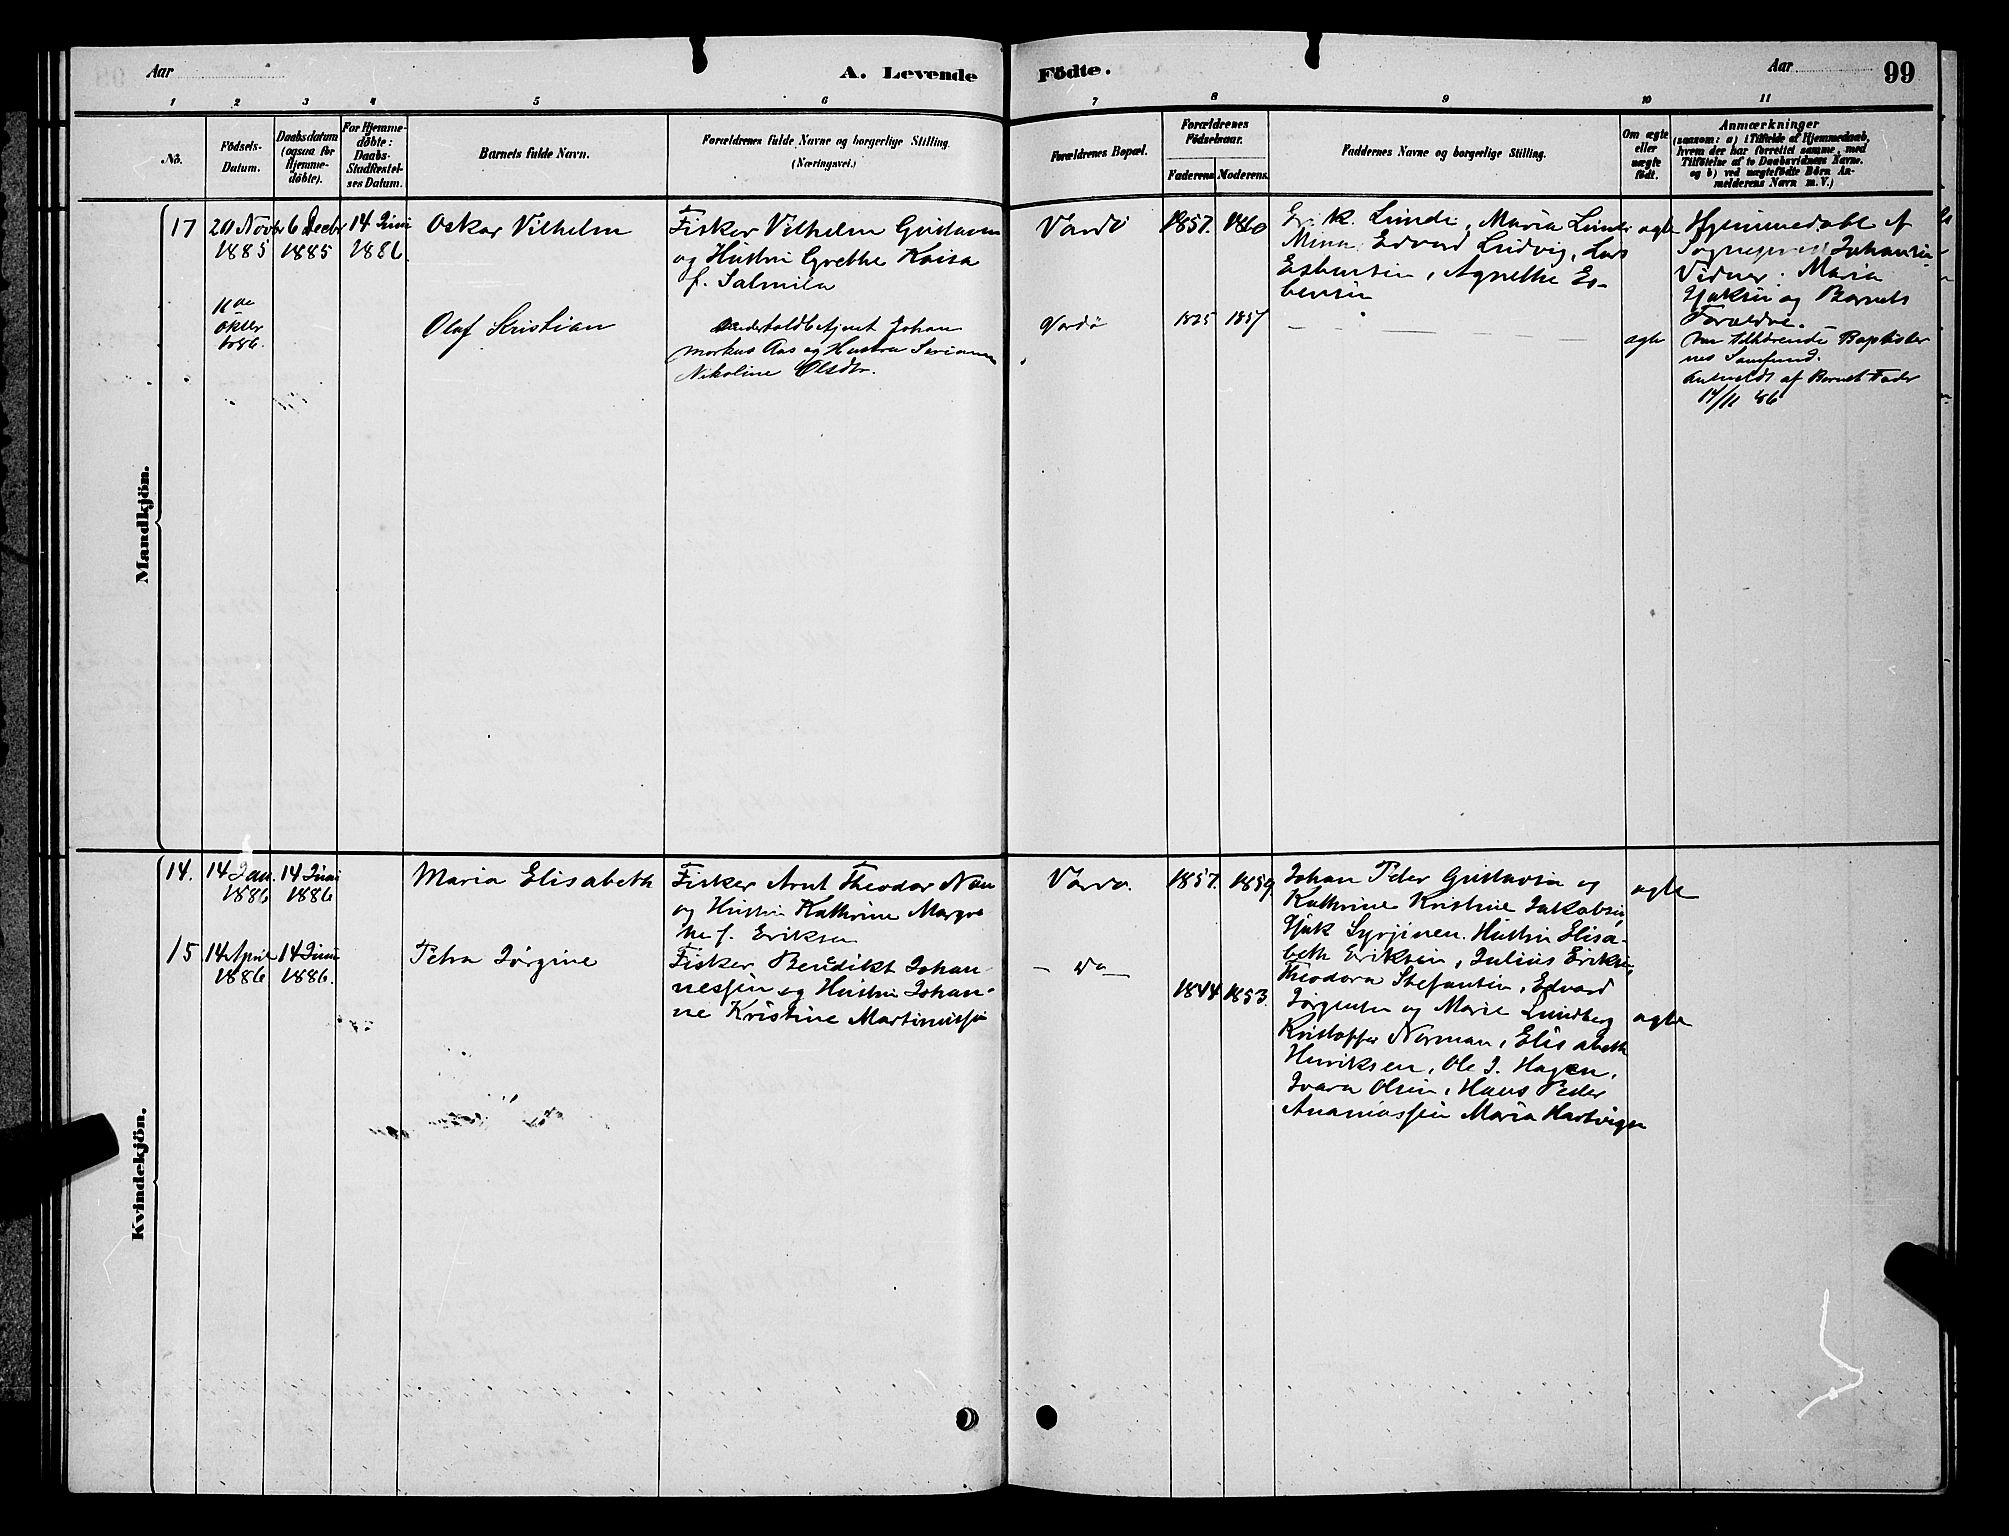 Aar
A. Levende
Födte.
Aar
99
1 2 3 4 5 6 7 8 9 10 11
No.
Födsels-
Datum.
Daabsdatum
(ogsaa for
Hjemme-
döbte).
For Hjemme-
döbte:
Daabs-
Stadfæstel-
ses Datum.
Barnets fulde Navn.
Forældrenes fulde Navne og borgerlige Stilling.
(Næringsvei.)
Forældrenes Bopæl.
Forældrenes
Födselsaar.
Faderens.
Moderens.
Faddernes Navne og borgerlige Stilling.
Om ægte
eller
uægte
födt.
Anmærkninger
(saasom: a) i Tilfælde af Hjemmedaab,
hvem der har forrettet samme, med
Tilföielse af to Daabsvidners Navne.
og b) ved uægtefödte Börn An-
melderens Navn m. V.)
Mandkjön.
17
20 Novbr
1885
6 Decbr
1885
14 Juni
1886.
Oskar Vilhelm
Fisker Vilhelm Gustavsen
og Hustru Grethe Kaisa
f. Salmila
Vardö
1857. 1860
Er. K. Lunde, Maria Lunde
Mina, Edvard Ludvig, Lars
Esbensen, Agnethe Es-
bensen
ægte
Hjemmedøbt af
Sognepræst Johansen
Vidner: Maria
og Barnets
Forældre.
11de
Oktbr
1886.
Olaf Kristian
Johan
Markus Aas og Hustru
Nikoline Olsdtr.
Vardø
1825 1857
ægte
tilhørende Baptister
nes Samfund.
Anmeldt af Barnets Fader
14/11 86
Kvindekjön.
14.
14 Jan.
1886
14 Juni
1886
Maria Elisabeth
Fisker Arnt Theodor
og Hustru Kathrine Margre
the f. Eriksen
Vardø.
1857. 1859
Johan Peder Gustavsen og
Kathrine Kristine Jakobsen,
Hustru Elisa-
beth Eriksen, Julius Eriksen,
ægte
15
14 April
1886
14 Juni
1886.
Petra Jørgine
Fisker Benedikt Johan-
nessen og Hustru Johan-
ne Kristine Martinussen
– Do –
1844 1853.
Theodora Stefansen, Edvard
Jørgensen og Marie Lundberg
Kristoffer Norman, Elisabeth
Henriksen, Ole J. Hagen,
Ivara Olsen, Hans Peder
Ananiassen Maria Hartvigsen
ægte